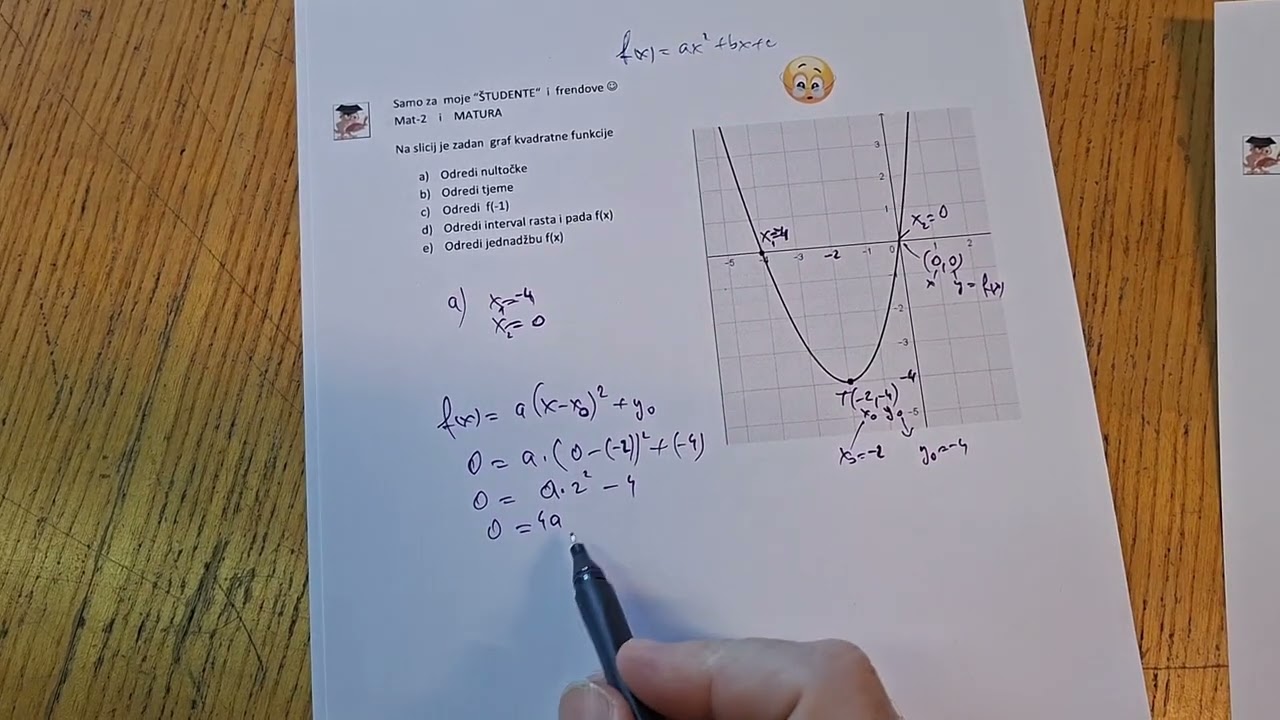 f(x) = ax² + bx + c
Samo za moje "ŠTUDENTE" i frendove ☺
Mat-2 i MATURA
Na slicij je zadan graf kvadratne funkcije
a) Odredi nultočke
b) Odredi tjeme
c) Odredi f(-1)
d) Odredi interval rasta i pada f(x)
e) Odredi jednadžbu f(x)
a) x₁=-4
x₂= 0
f(x)= a(x-x₀)² + y₀
0 = a·(0-(-2))² + (-4)
0 = a·2² - 4
0 = 4a
3
2
1
x₂=0
x₁=-4
-5 -4 -3 -2 -1 0 1 2
(0,0)
x y = f(x)
-2
-3
-4
T(-2,-4)
x₀ y₀ -5
x₀=-2 y₀=-4